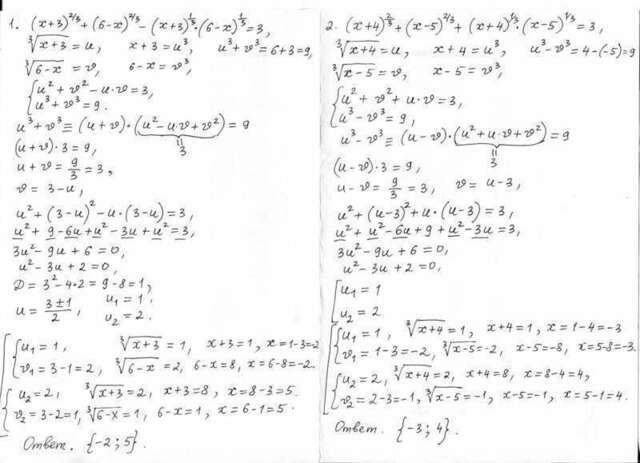 1. (x+3)^{2/3} + (6-x)^{2/3} - (x+3)^{1/3}·(6-x)^{1/3} = 3,
∛(x+3) = u, x+3 = u³, u³+v³ = 6+3 = 9,
∛(6-x) = v, 6-x = v³,
{u²+v²-u·v = 3,
{u³+v³ = 9.
u³+v³ ≡ (u+v)·(u²-u·v+v²) = 9
॥
3
(u+v)·3 = 9,
u+v = 9/3 = 3,
v = 3-u,
u²+(3-u)²-u·(3-u) = 3,
u²+9-6u+u²-3u+u² = 3,
3u²-9u+6 = 0,
u²-3u+2 = 0,
D = 3²-4·2 = 9-8 = 1,
u = (3±1)/2, u₁ = 1,
u₂ = 2.
{u₁ = 1, ∛(x+3) = 1, x+3 = 1, x = 1-3 = -2
{v₁ = 3-1 = 2, ∛(6-x) = 2, 6-x = 8, x = 6-8 = -2.
{u₂ = 2, ∛(x+3) = 2, x+3 = 8, x = 8-3 = 5.
{v₂ = 3-2 = 1, ∛(6-x) = 1, 6-x = 1, x = 6-1 = 5.
Ответ. {-2; 5}.
2. (x+4)^{2/3} + (x-5)^{2/3} + (x+4)^{1/3}·(x-5)^{1/3} = 3,
∛(x+4) = u, x+4 = u³, u³-v³ = 4-(-5) = 9
∛(x-5) = v, x-5 = v³,
{u²+v²+u·v = 3,
{u³-v³ = 9.
u³-v³ ≡ (u-v)·(u²+u·v+v²) = 9
॥
3
(u-v)·3 = 9,
u-v = 9/3 = 3, v = u-3,
u²+(u-3)²+u·(u-3) = 3,
u²+u²-6u+9+u²-3u = 3,
3u²-9u+6 = 0,
u²-3u+2 = 0,
[u₁ = 1
[u₂ = 2
{u₁ = 1, ∛(x+4) = 1, x+4 = 1, x = 1-4 = -3
{v₁ = 1-3 = -2, ∛(x-5) = -2, x-5 = -8, x = 5-8 = -3.
{u₂ = 2, ∛(x+4) = 2, x+4 = 8, x = 8-4 = 4,
{v₂ = 2-3 = -1, ∛(x-5) = -1, x-5 = -1, x = 5-1 = 4.
Ответ. {-3; 4}.